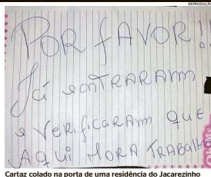 REPRODUÇÃO
POR FAVOR!
Já entraram
e verificaram que
aqui mora trabalh
Cartaz colado na porta de uma residência do Jacarezinho